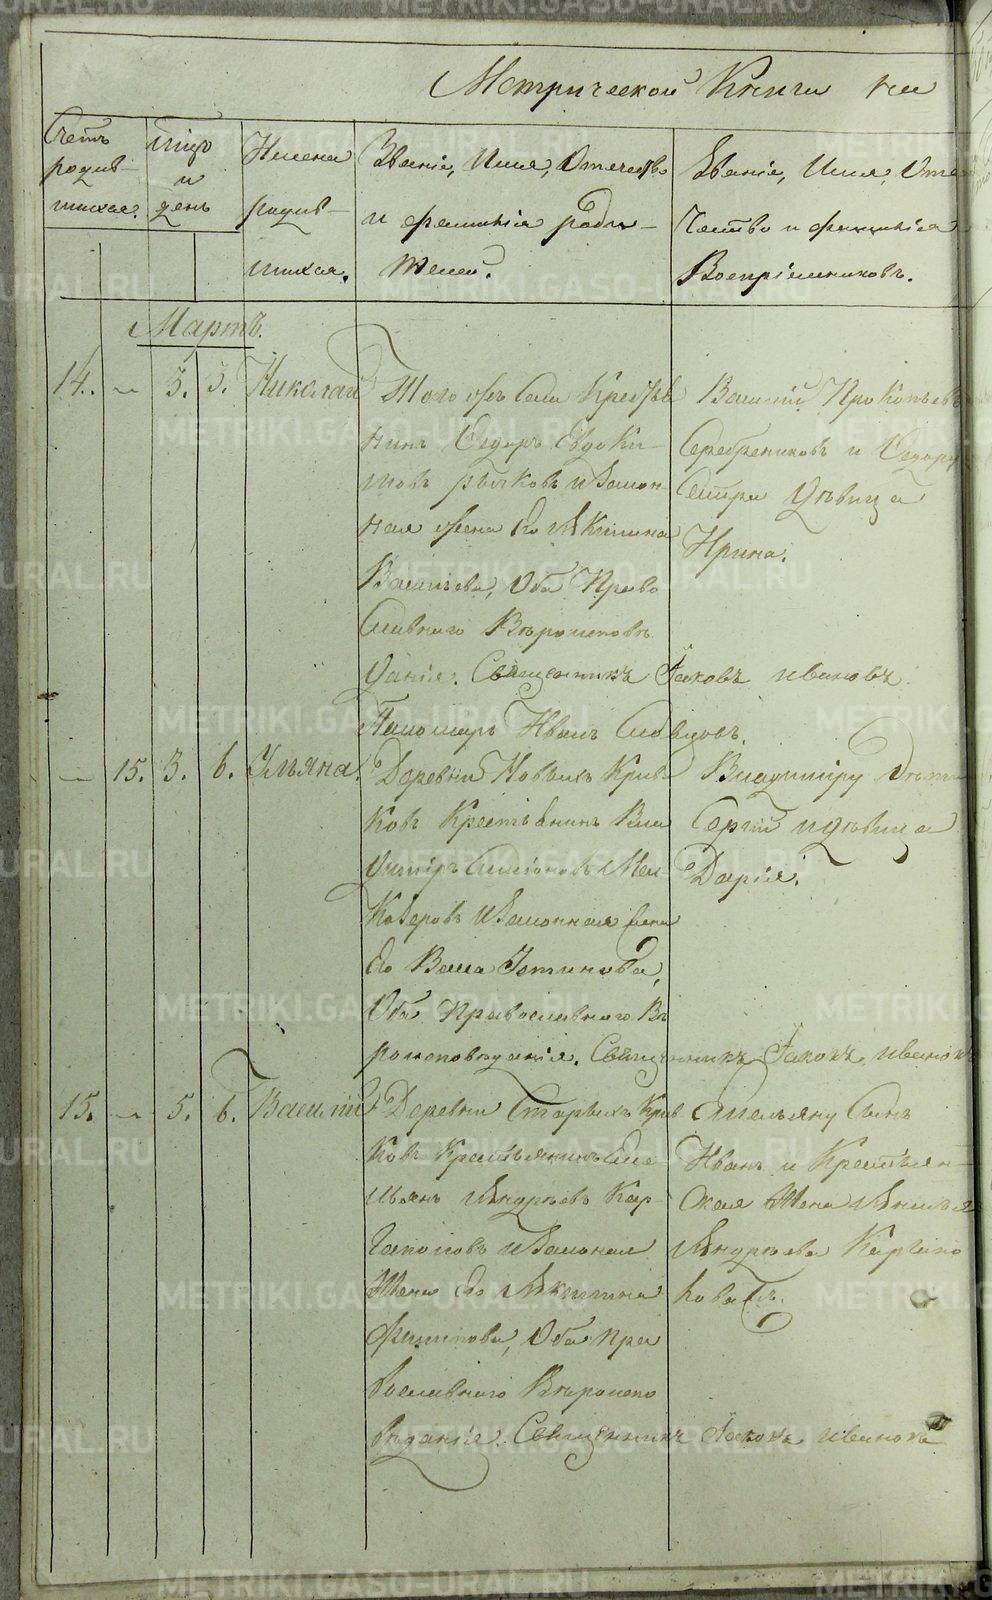 Метрической Книги на
Счетъ родив- шихся.
Число и день
Имена родив- шихся.
Званіе, Имя, Отчество
и фамилія роди-
телей.
Званіе, Имя, Отче
чество и фамилія
Воспріемниковъ.
Мартъ.
14. 3. 5. Николай
Того жъ Села Крестья
нинъ Ѳедоръ Евдоки-
мовъ и Закон
ная жена Его Акилина
Васильева, Оба Право
Славнаго Вѣроисповѣ
данія. Священникъ Іаковъ Ивановъ.
Пономарь Иванъ Словцовъ.
Василий Прокопьевъ
Серебрениковъ и Ѳедору
Сестра Дѣвица
Ирина.
15. 3. 6. Ульяна.
Деревни Новыхъ Крив
ковъ Крестьянинъ Вла
димиръ Симоновъ Мел
козеровъ и Законная жена
Его Васса Устинова,
Оба Православнаго Вѣ
роисповѣданія. Священникъ Іаковъ Ивановъ
Владиміру
Сергій и Дѣвица
Дарія.
15. 5. 6. Василий
Деревни Старыхъ Крив
ковъ Крестьянинъ Еме
льянъ Андреевъ Кар-
гаполовъ и Законая
Жена Его Акилина
Филипова, Оба Пра
вославнаго Вѣроиспо
вѣданія. Священникъ Іаковъ Ивановъ
Емельяну Сынъ
Иванъ и Крестьян-
ская Жена
Андреева Каргапо
лова
METRIKI.GASO-URAL.RU